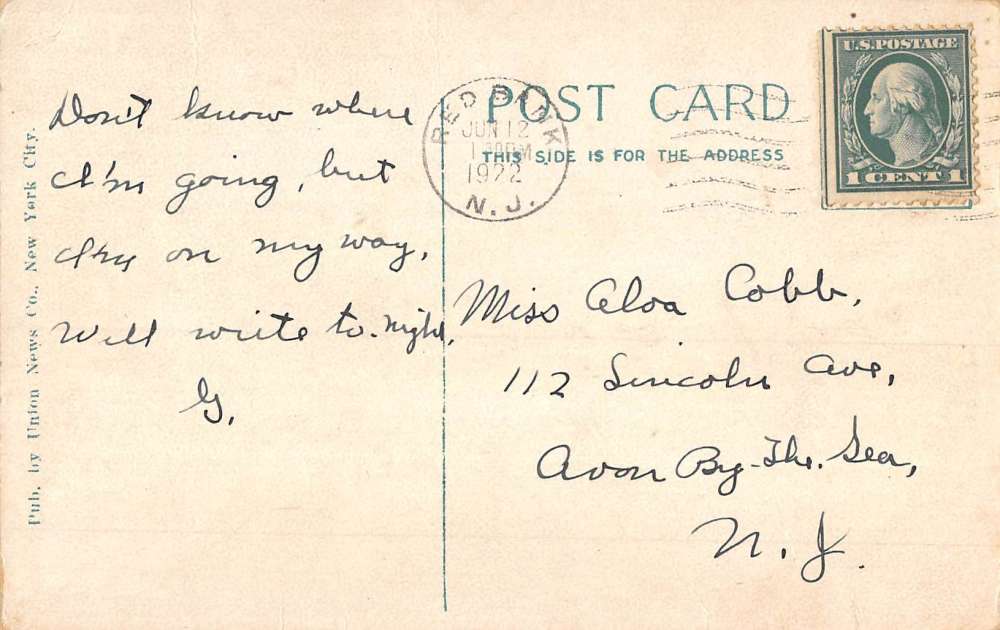 Don't know where
I'm going, but
I'm on my way,
Will write to-night.
G.
Pub. by Union News Co., New York City.
POST CARD
THIS SIDE IS FOR THE ADDRESS
RED BANK
JUN 12
1922
N. J.
U.S. POSTAGE
1 CENT 1
Miss Aloa Cobb,
112 Lincoln Ave,
Avon By-The-Sea,
N. J.